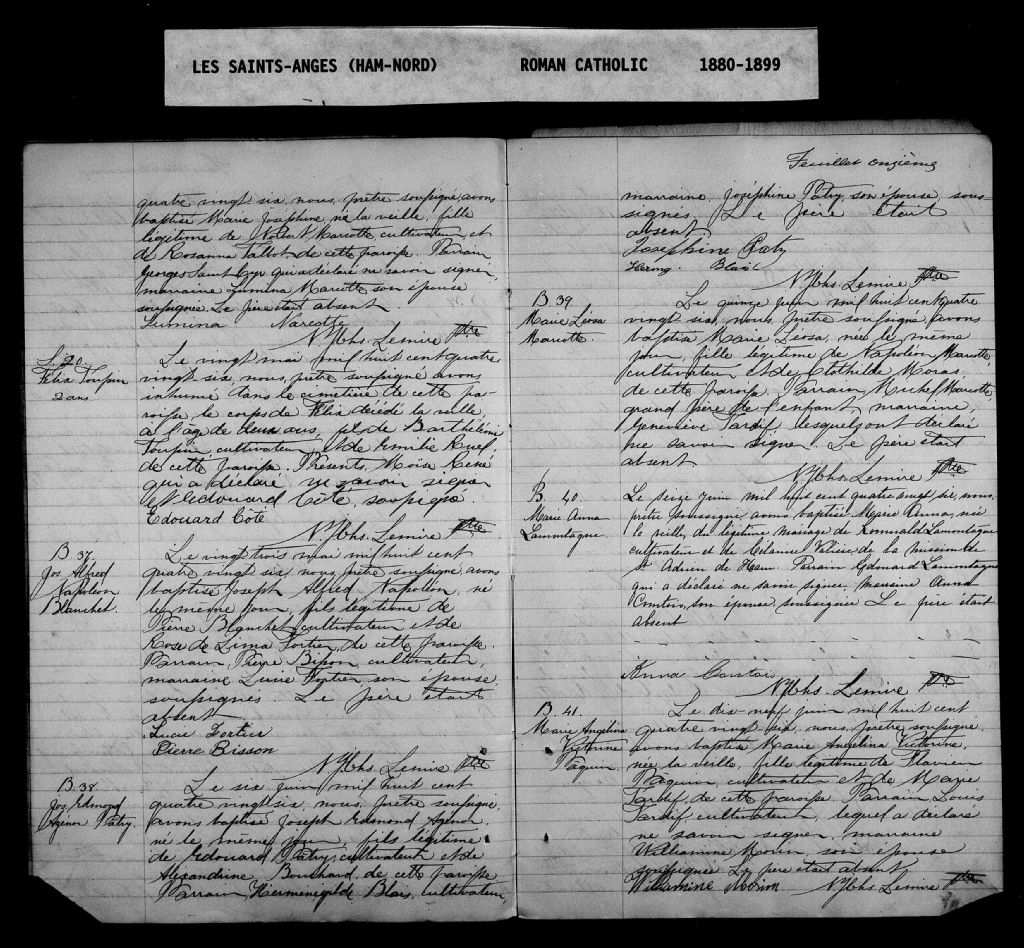 LES SAINTS-ANGES (HAM-NORD) ROMAN CATHOLIC 1880-1899
quatre vingt six, nous, prêtre soussigné, avons
baptisé Marie Joséphine, née la veille, fille
légitime de Marcotte, cultivateur, et
de Rosanna Talbot de cette paroisse. Parrain
Georges Saint Cyr qui a déclaré ne savoir signer,
marraine Lumina Marcotte son épouse
soussignée. Le père était absent
Lumina Marcotte
Lemire Ptre
S. 20.
Félix Toupin
2 ans.
Le vingt mai mil huit cent quatre
vingt six, nous, prêtre soussigné avons
inhumé dans le cimetière de cette pa-
roisse, le corps de Félix décédé la veille,
à l'âge de deux ans, fils de Barthélemi
Toupin, cultivateur, et de Emilie Ruel,
de cette paroisse. Présents, Moïse
qui a déclaré ne savoir signer
et Edouard Côté, soussigné.
Edouard Côté
Lemire Ptre
B 37.
Jos. Alfred
Napoléon
Blanchet.
Le vingt trois mai mil huit cent
quatre vingt six nous, prêtre soussigné, avons
baptisé Joseph Alfred Napoléon, né
le même jour, fils légitime de
Pierre Blanchet, cultivateur et de
Rose de Lima Fortier, de cette paroisse.
Parrain, Pierre Bisson, cultivateur,
marraine Lucie Fortier son épouse
soussignés. Le père était
absent
Lucie Fortier
Pierre Bisson
Lemire Ptre
B 38.
Jos. Edmond
Agénor Patry.
Le six juin mil huit cent
quatre vingt six, nous, prêtre soussigné,
avons baptisé Joseph Edmond Agénor,
né le même jour, fils légitime
de Edouard Patry, cultivateur et de
Alexandrine Bouchard, de cette paroisse
Parrain, Herménégilde Blais, cultivateur,
Feuillet onzième
marraine, Joséphine Patry, son épouse, sous
signés. Le père était
absent
Josephine Patry
Blais
Lemire Ptre
B. 39.
Marie Léosa
Marcotte.
Le quinze juin mil huit cent quatre
vingt six, nous, prêtre soussigné, avons
baptisé Marie Léosa, née le même
jour, fille légitime de Napoléon Marcotte,
cultivateur et de Clothilde Moras,
de cette paroisse. Parrain, Michel Marcotte,
grand père de l'enfant, marraine,
Geneviève Tardif lesquels ont déclaré
ne savoir signer. Le père était
absent
Lemire Ptre
B. 40.
Marie Anna
Lamontagne.
Le seize juin mil huit cent quatre vingt six, nous,
prêtre soussigné, avons baptisé Marie Anna, née
la veille, du légitime mariage de Romuald Lamontagne
cultivateur et de de la mission de
St Adrien de Ham. Parrain Edouard Lamontagne
qui a déclaré ne savoir signer, marraine Anna
Comtois, son épouse soussignée Le père était
absent
Anna Comtois
Lemire Ptre
B. 41.
Marie Angelina
Victorine
Paquin.
Le dix neuf juin mil huit cent
quatre vingt six, nous, prêtre soussigné,
avons baptisé Marie Angelina Victorine,
née la veille, fille légitime de Flavien
Paquin, cultivateur et de Marie
Tardif, de cette paroisse. Parrain Louis
Tardif, cultivateur, lequel a déclaré
ne savoir signer, marraine
Williamine Morin, son épouse
soussignée. Le père était absent
Williamine Morin Lemire Ptre